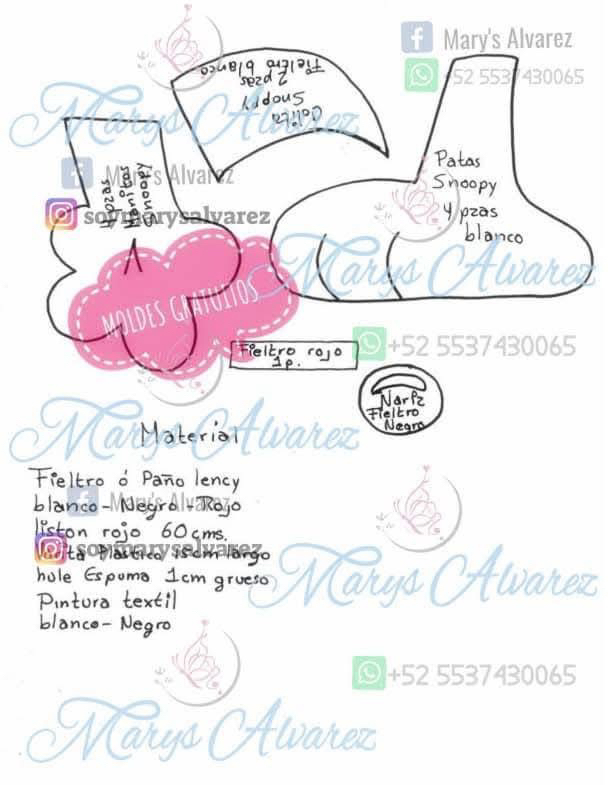 Mary's Alvarez
+52 5537430065
Marys Alvarez
Colita
Snoopy
2 pzas
Fieltro blanco
Patas
Snoopy
4 pzas
blanco
Mary's Alvarez
soymarysalvarez
Snoopy
4 pzas
Marys Alvarez
MOLDES GRATUITOS
Fieltro rojo
1p.
+52 5537430065
Nariz
Fieltro
Negro
Marys Alvarez
Material
Fieltro ó Paño lency
blanco-Negro-Rojo
Mary's Alvarez
liston rojo 60cms.
soymarysalvarez
Plastico 15cm largo
hule Espuma 1cm grueso
Marys Alvarez
Pintura textil
blanco-Negro
+52 5537430065
Marys Alvarez